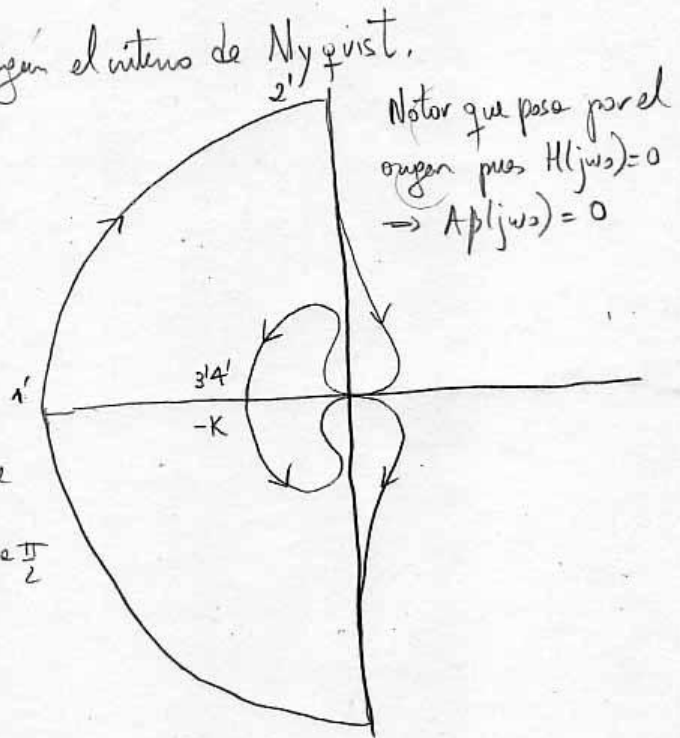 el criterio de Nyquist.
2'
Notar que pasa por el
origen pues H(jω₀)=0
⇒ Aβ(jω₀) = 0
1'
3'4'
-K
π/2